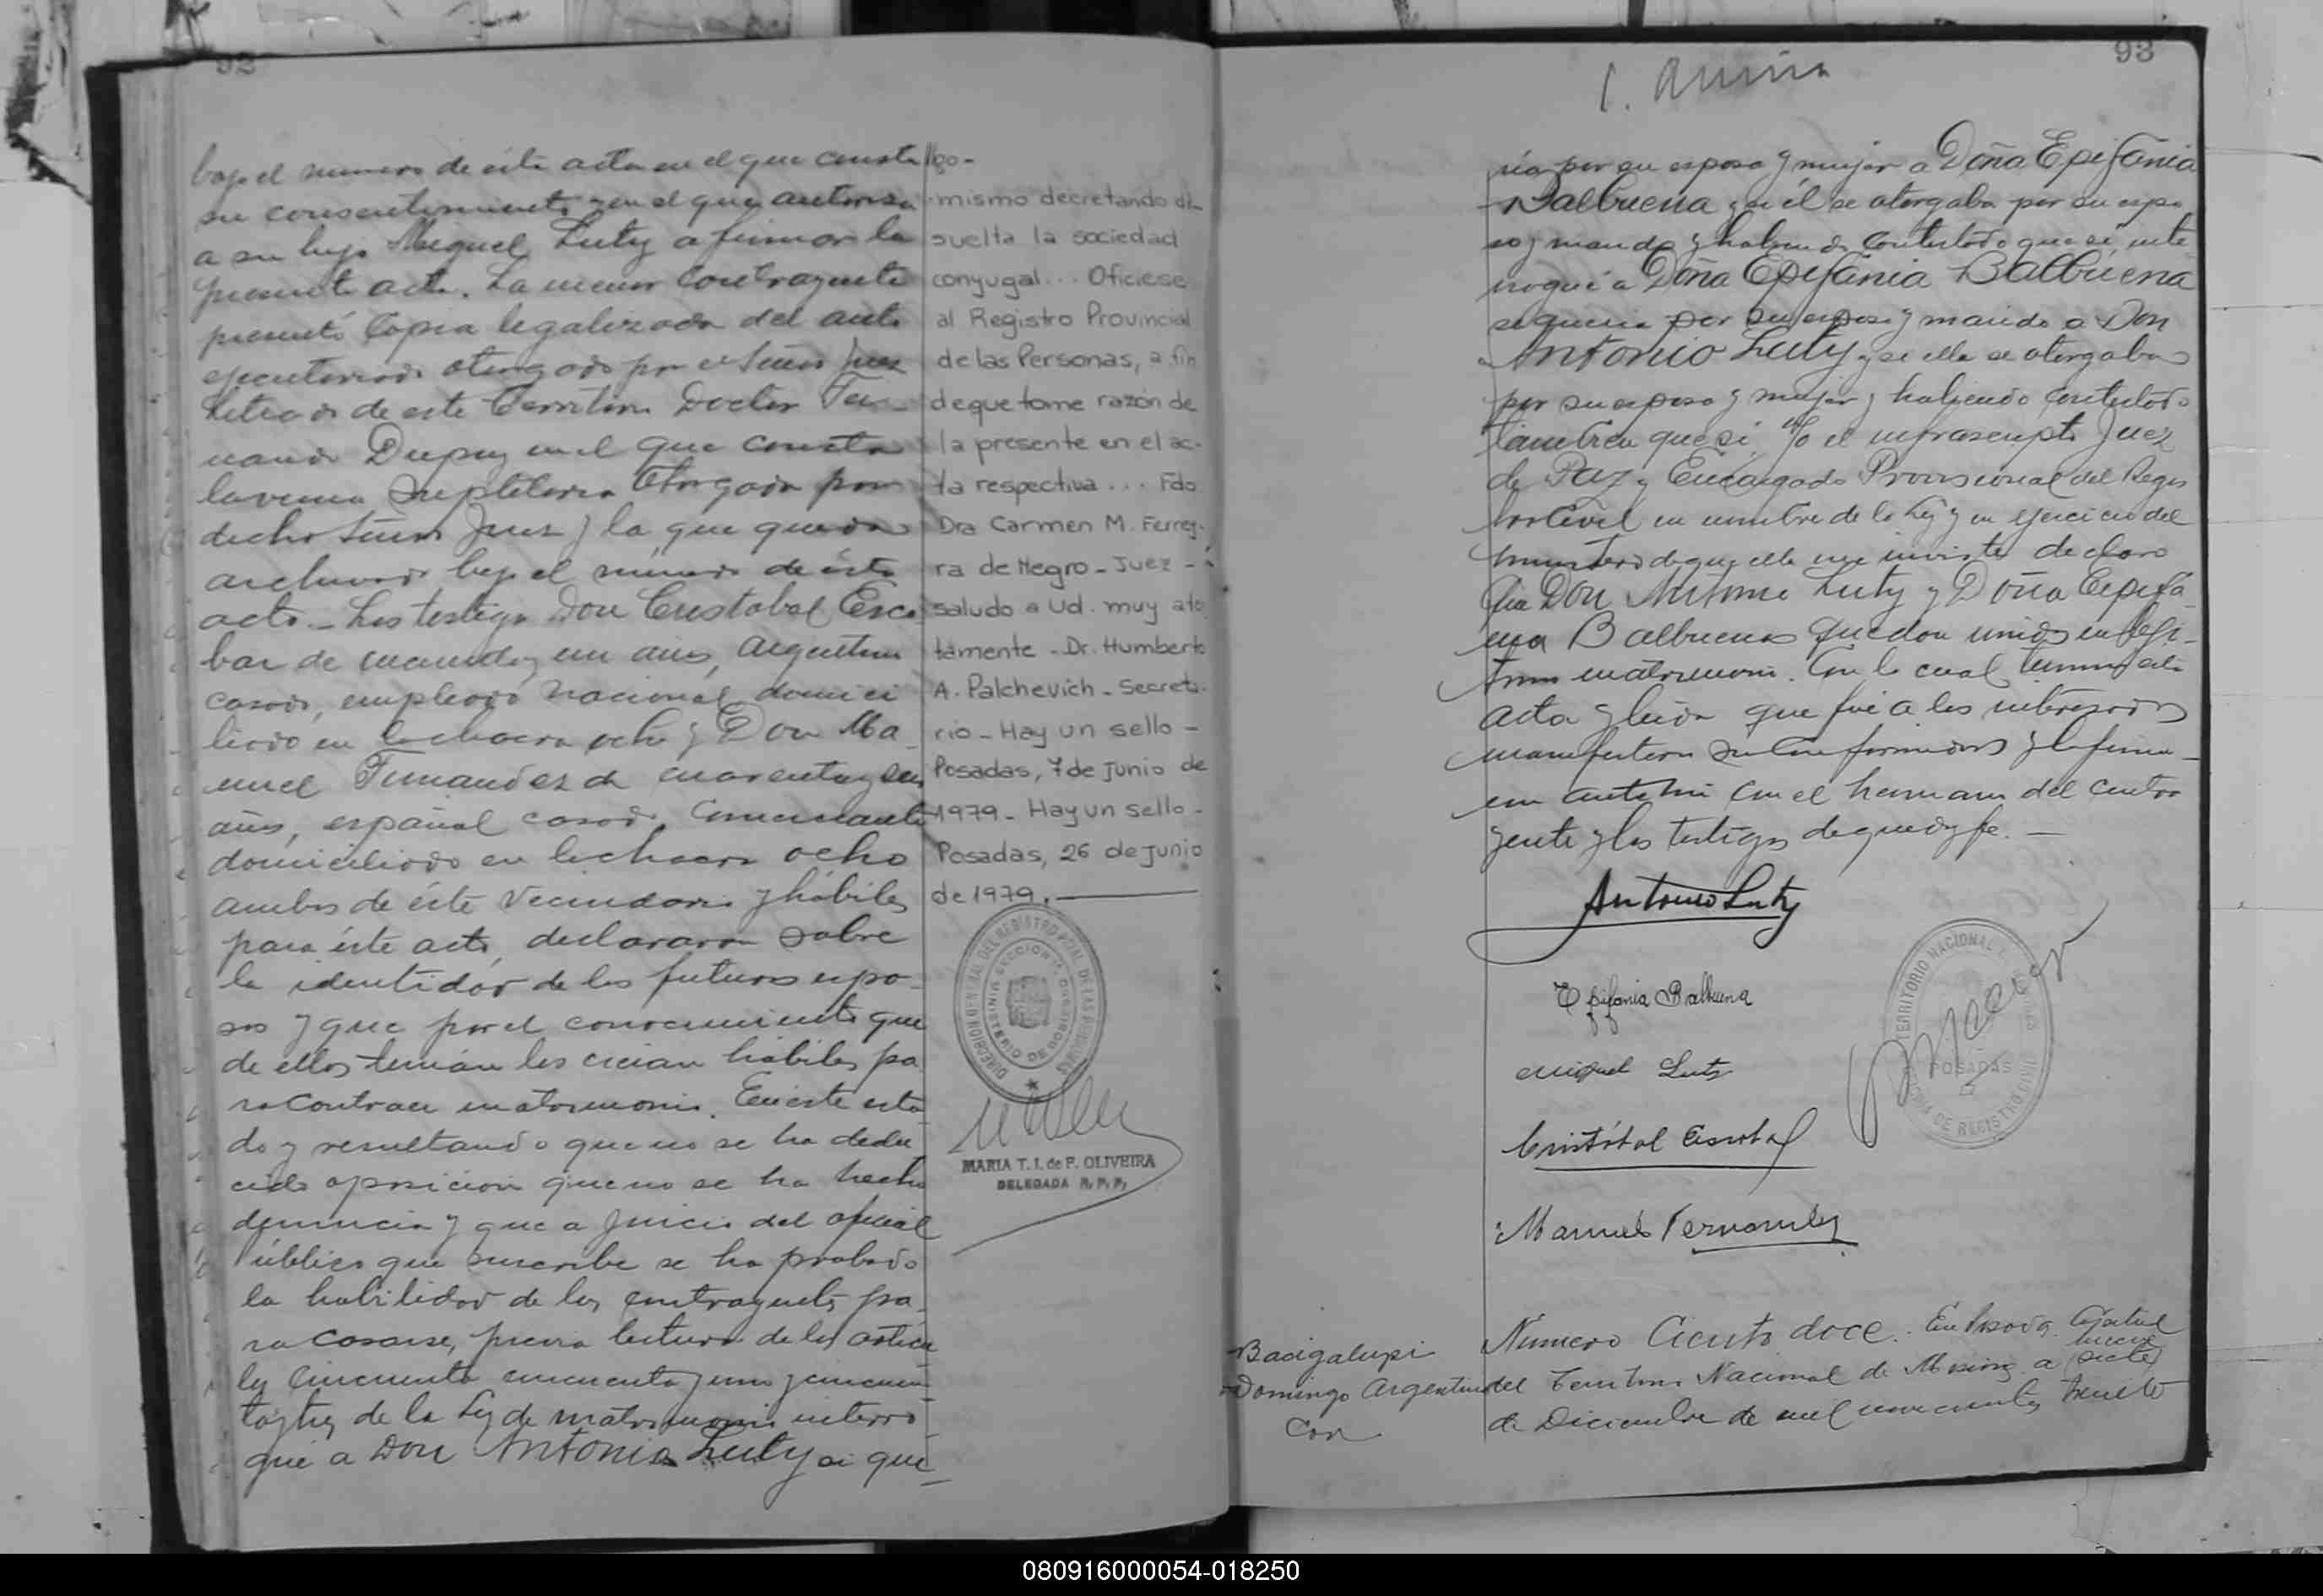 92
bajo el numero de esta acta en el que consta
su consentimiento y en el que autoriza
a su hijo Miguel Luty a firmar la
presente acta. La menor contrayente
presentó Copia legalizada del auto
ejecutoriado otorgado por el Señor Juez
Letrado de este Territorio Doctor
Dupuy en el que consta
la venia Supletoria otorgada por
dicho Señor Juez y la que queda
archivada bajo el numero de ésta
acta. Los testigos Don Cristobal Esco
bar de cuarenta y un años, argentino
casado, empleado nacional, domici
liado en la chacra ocho y Don Ma
nuel Fernandez de cuarenta y seis
años, español casado, comerciante
domiciliado en la chacra ocho
ambos de éste Vecindario y hábiles
para éste acto, declararon sobre
la identidad de los futuros espo-
sos y que por el conocimiento que
de ellos tenían los creían hábiles pa
ra contraer matrimonio. En este esta
do y resultando que no se ha dedu
cido oposición que no se ha hecho
denuncia y que a juicio del oficial
Público que suscribe se ha probado
la habilidad de los contrayentes pa
ra casarse, previa lectura de los articu
los cincuenta cincuenta y uno y cincuen
ta y tres de la Ley de matrimonio interro
gué a Don Antonio Luty si que-
//go-
mismo decretando di-
suelta la sociedad
conyugal... Oficiese
al Registro Provincial
de las Personas, a fin
de que tome razón de
la presente en el ac-
ta respectiva... Fdo
Dra Carmen M. Ferrey-
ra de Negro - Juez -
saludo a Ud. muy ate
tamente - Dr. Humberto
A. Palchevich - Secreta-
rio - Hay un sello -
Posadas, 7 de Junio de
1979 - Hay un sello -
Posadas, 26 de Junio
de 1979.
MARIA T. I. de F. OLIVEIRA
DELEGADA R. P. P.
93
ría por su esposa y mujer a Doña Epifania
Balbuena y si él se otorgaba por su espo
so y marido y habiendo contestado que sí, inte
rrogué a Doña Epifania Balbuena
si quería por su esposo y marido a Don
Antonio Luty y si ella se otorgaba
por su esposa y mujer y habiendo contestado
también que sí, Yo el infrascripto Juez
de Paz y Encargado Provisional del Regis
tro Civil en nombre de la Ley y en ejercicio del
ministerio de que ella me inviste declaro
que Don Antonio Luty y Doña Epifa-
nia Balbuena quedan unidos en legi-
timo matrimonio. Con lo cual termino esta
acta y leida que fué a los interesados
manifestaron su conformidad y la firma-
ron ante mi con el hermano del contra
yente y los testigos de que doy fe. —
Antonio Luty
Epifania Balbuena
Miguel Luty
Cristóbal Escobar
Manuel Fernandez
TERRITORIO NACIONAL
POSADAS
Bacigalupi
Domingo Argentino
Con
Número Ciento doce. En Posadas Capital
del Territorio Nacional de Misiones a nueve (siete)
de Diciembre de mil novecientos treinta
080916000054-018250